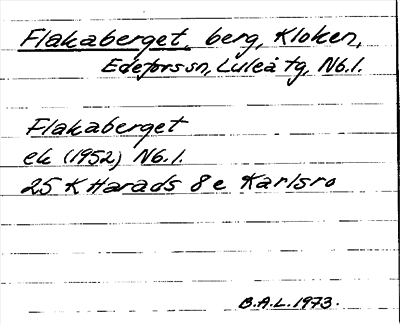 Flakaberget, berg, Kloken,
Edefors sn, Luleå tg, Nb.l.
Flakaberget
ek (1952) Nb.l.
25 K Harads 8 e Karlsro
B.A.L. 1973.